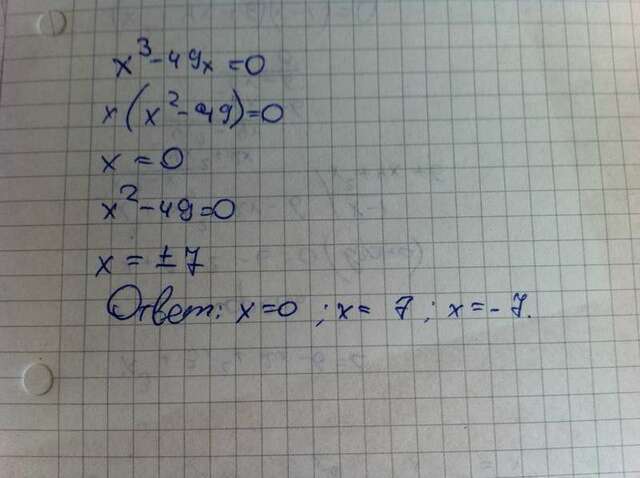 x³-49x=0
x(x²-49)=0
x=0
x²-49=0
x=±7
Ответ: x=0; x=7; x=-7.